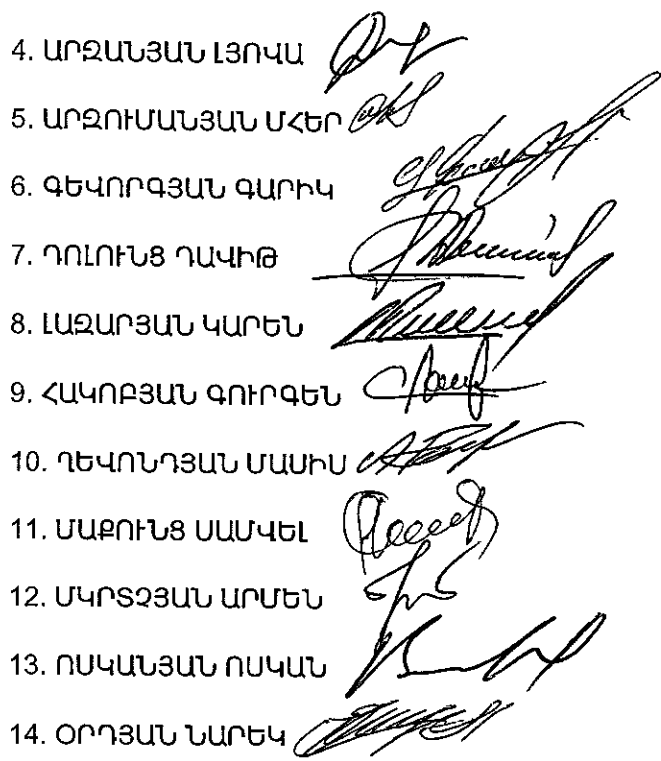 4. ԱՐԶԱՆՅԱՆ ԼՅՈՎԱ
5. ԱՐԶՈՒՄԱՆՅԱՆ ՄՀԵՐ
6. ԳԵՎՈՐԳՅԱՆ ԳԱՐԻԿ
7. ԴՈԼՈՒՆՑ ԴԱՎԻԹ
8. ԼԱԶԱՐՅԱՆ ԿԱՐԵՆ
9. ՀԱԿՈԲՅԱՆ ԳՈՒՐԳԵՆ
10. ՂԵՎՈՆԴՅԱՆ ՄԱՍԻՍ
11. ՄԱՔՈՒՆՑ ՍԱՄՎԵԼ
12. ՄԿՐՏՉՅԱՆ ԱՐՄԵՆ
13. ՈՍԿԱՆՅԱՆ ՈՍԿԱՆ
14. ՕՐԴՅԱՆ ՆԱՐԵԿ